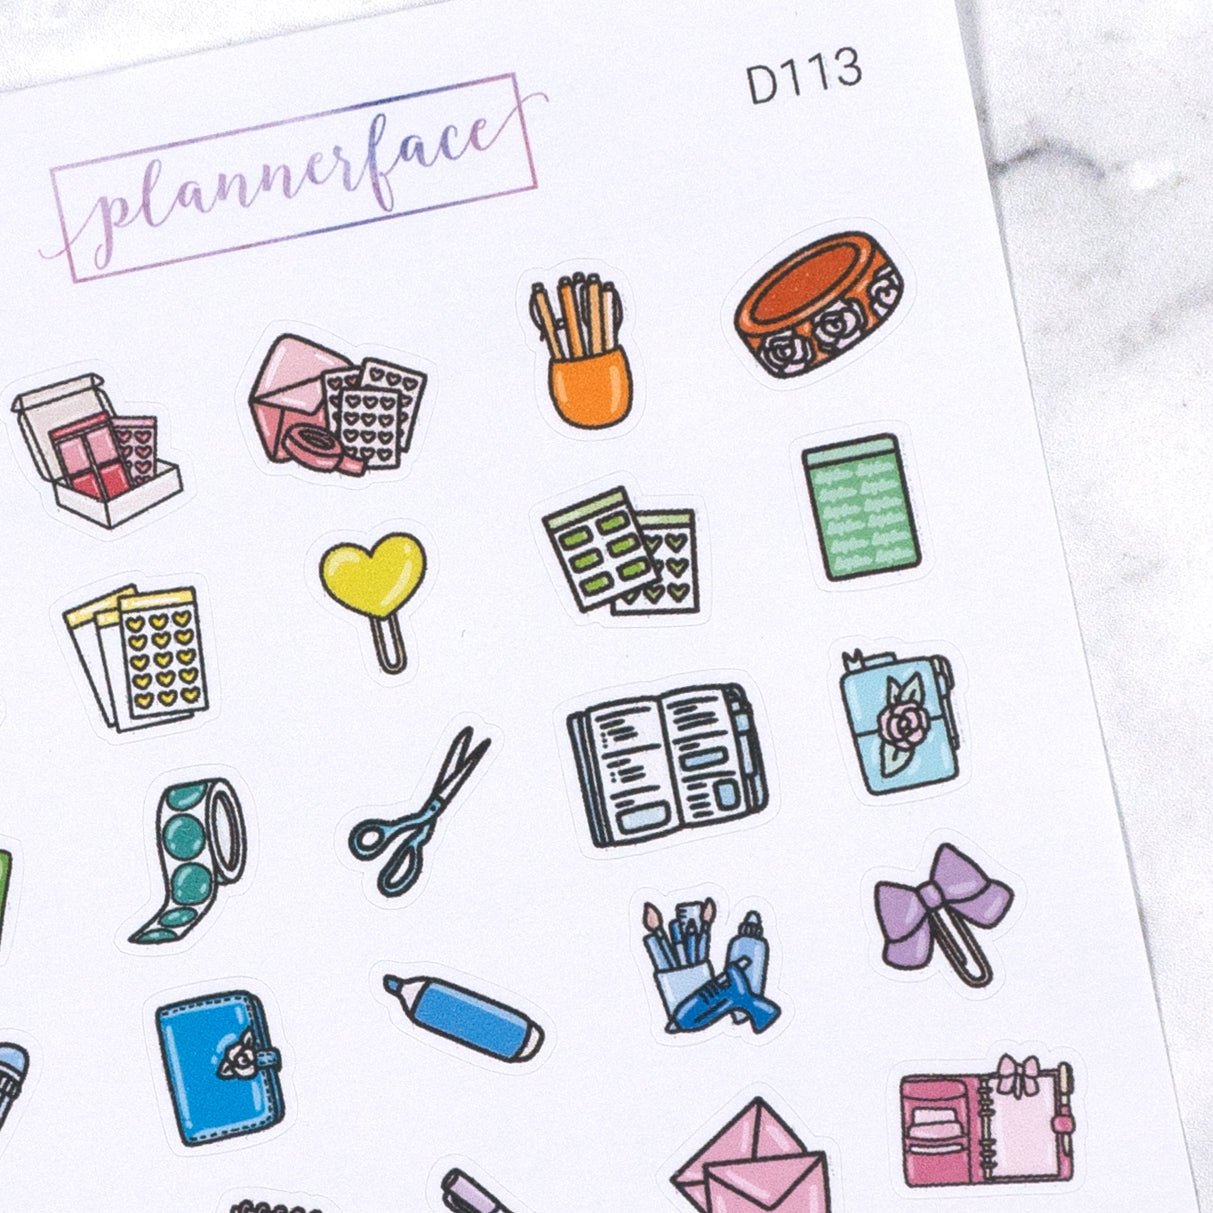 plannerface
D113